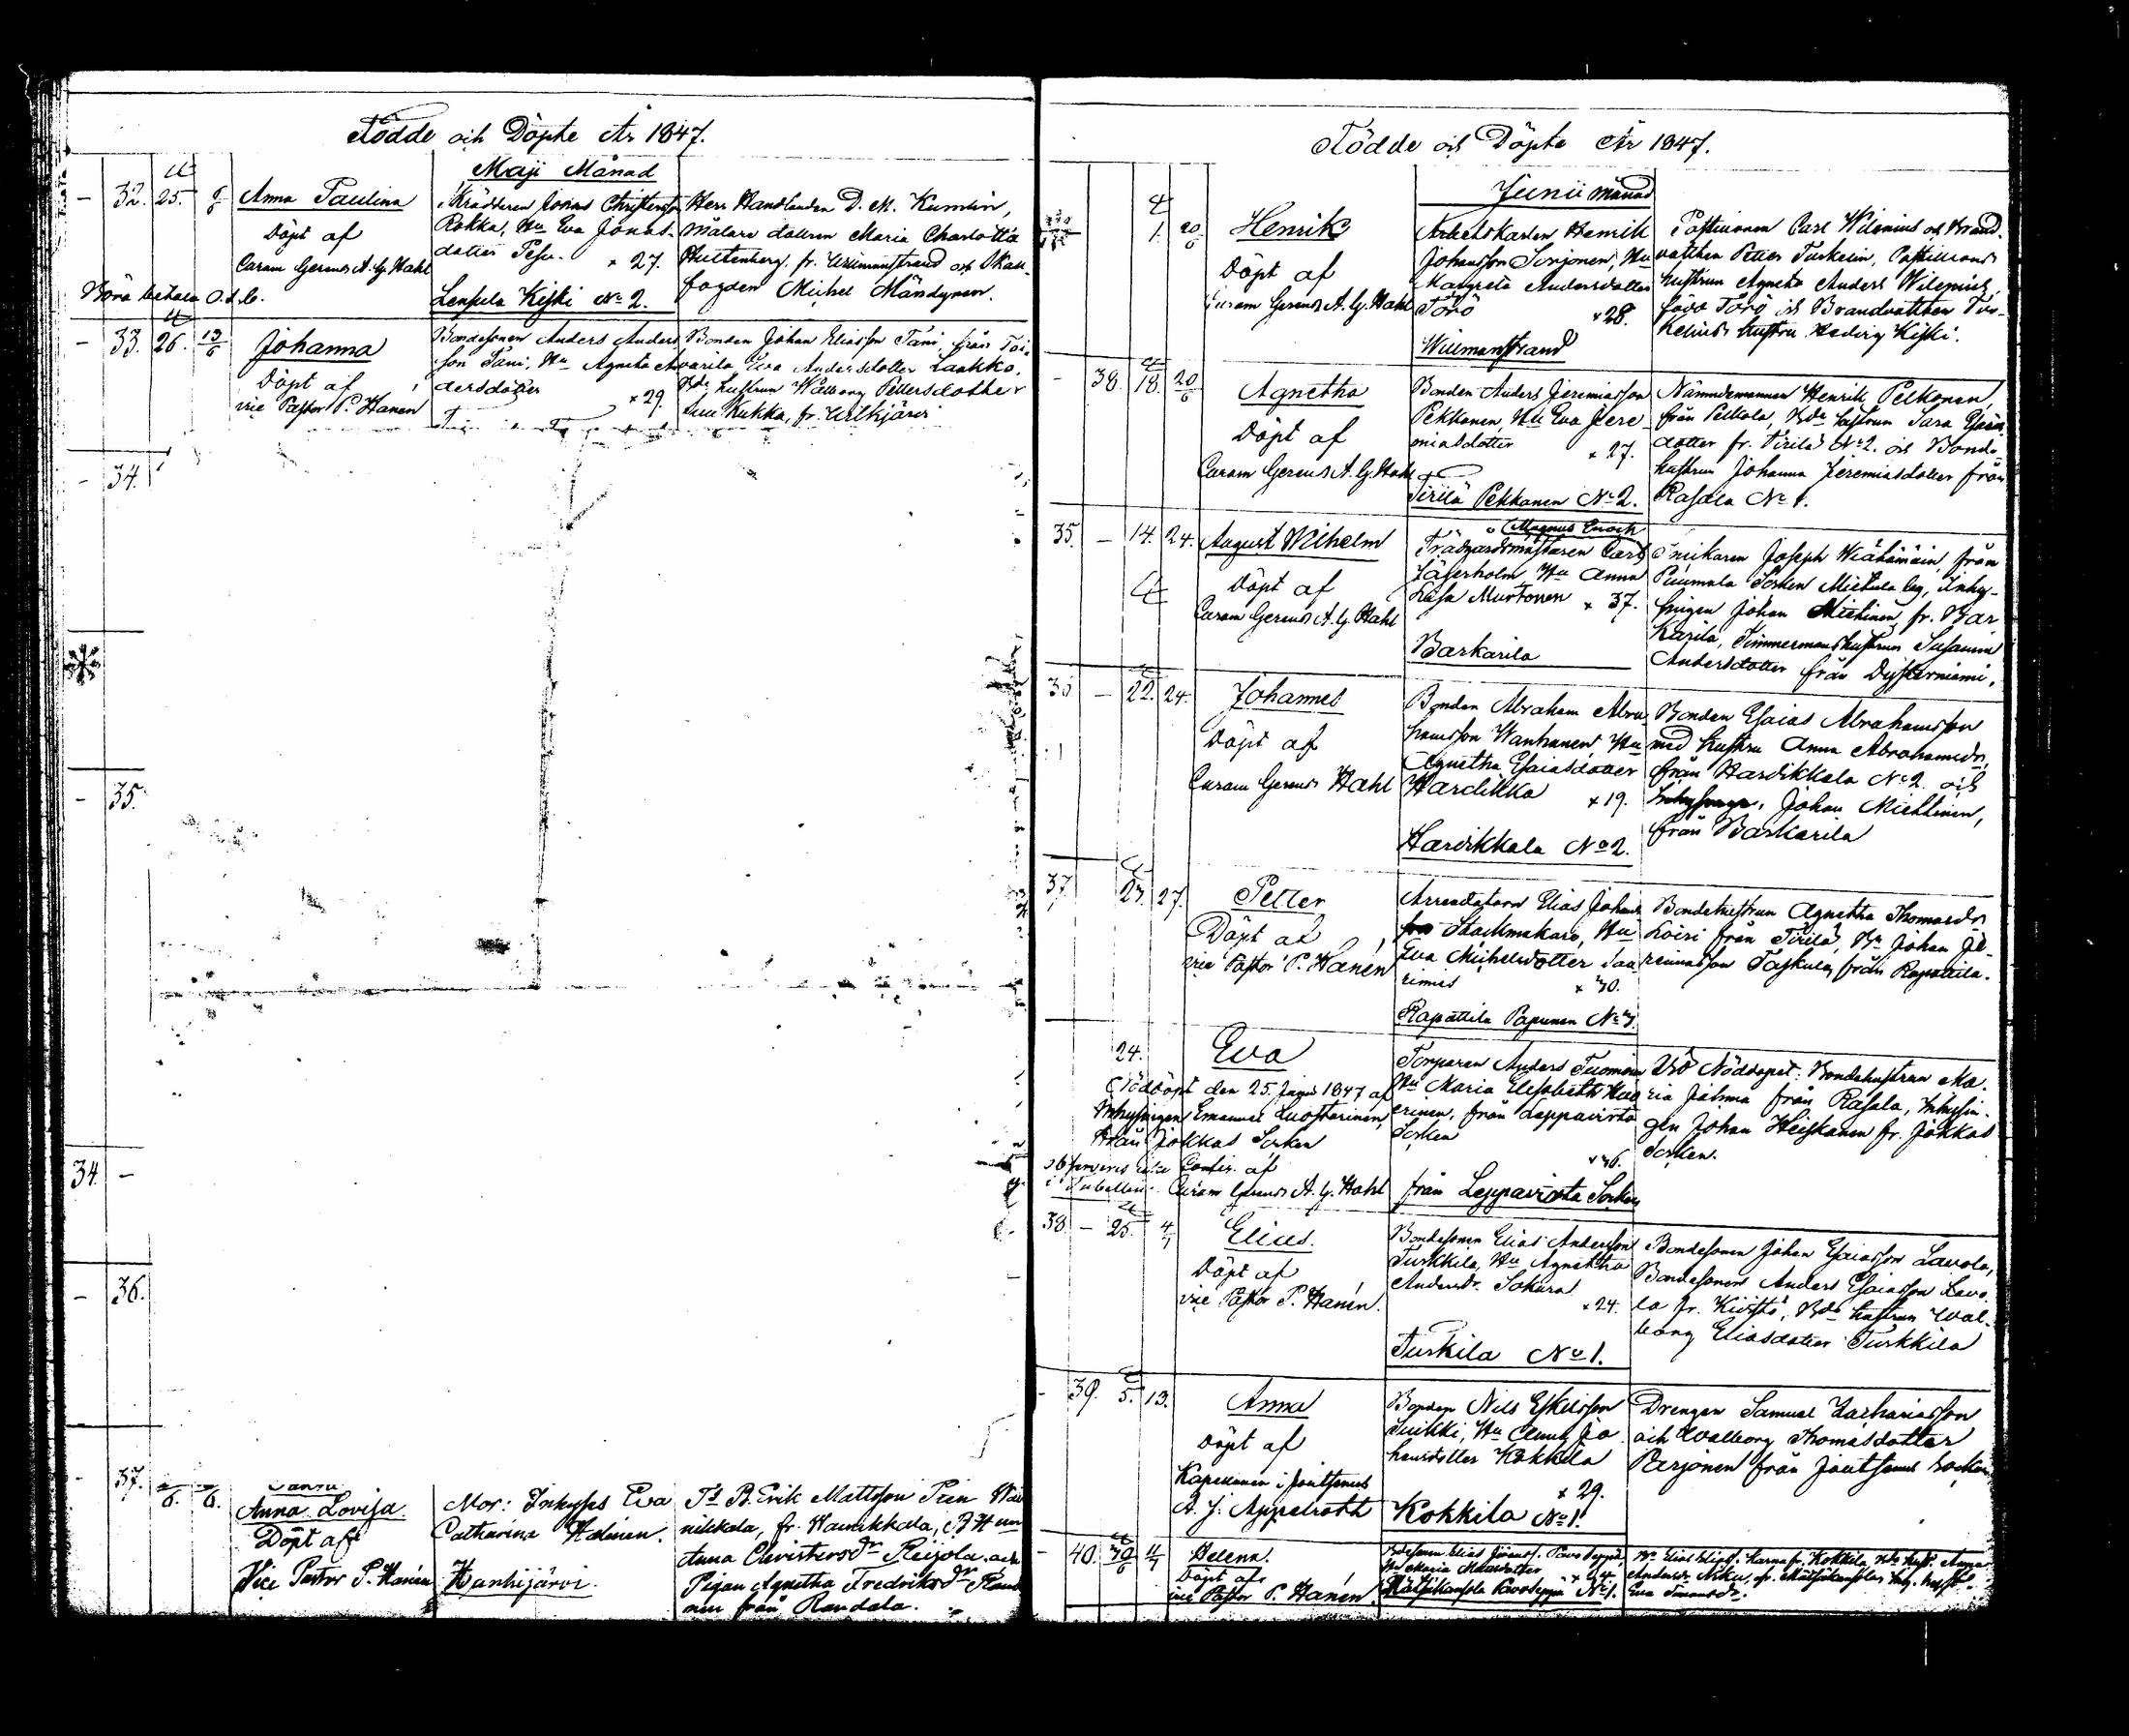 Födde och Döpte År 1847.
Maji Månad
- 32. 25. 6 Anna Paulina
Döpt af
Curam Gerens A. G. Hahl
Böra betala
Skräddaren Jonas Christersson
Rokka, Hu Eva Jonas-
dotter Pesu. × 27.
Lensula Kiski No 2.
Herr Handlanden D. M. Kumlin,
målare dottren Maria Charlotta
Huttenberg, fr. Willmanstrand och
fogden Michel Mändynen.
- 33. 26. 13/6 Johanna
Döpt af
vice Pastor P. Hanén
Bondesonen Anders Anders
son Täni, Hu Agneta An
dersdotter × 29.
Bonden Johan Eliasson Täni, från
Eva Andersdotter Laakko,
Bde hustrun Walborg Pettersdotter
Kukka, fr. Wilkjärvi
- 34.
- 35.
34. -
- 36.
- 37.
Anna Lovisa.
Döpt aff
Vice Pastor P. Hanén
Mor: Inhyses Eva
Catharina Halinen.
Hanhijärvi.
Erik Mattsson
fr. Haimikkala,
Anna Christersdr Reijola och
Pigan Agnetha Fredriksdr
från Randala.
Födde och Döpte År 1847.
Junii månad
1. 20/6 Henrik
Döpt af
Curam Gerens A. G. Hahl
Arbetskarlen Henrik
Johansson Sorjonen, Hu
Margreta Andersdotter
Törö × 28.
Willmanstrand
Postiljonen Carl Wilenius och Brand-
vakten Petter Tuskelin, Postiljons
hustrun Agneta Anders Wilenius,
född Törö och Brandvakten Tus-
kelins hustru Hedvig Kiski.
- 38. 18. 20/6 Agnetha
Döpt af
Curam Gerens A. G. Hahl
Bonden Anders Jeremiasson
Pekkonen, Hu Eva Jere-
miasdotter × 27.
Tirilä Pekkanen No 2.
Nämndemannen Henrik Pelkonen,
från Peltola, Bde hustrun Sara Esais
dotter fr. Tirilä No 2. och Bonde-
hustrun Johanna Jeremiasdotter från
Rasala No 1.
35. - 14. 24. August Wilhelm
Döpt af
Curam Gerens A. G. Hahl
Magnus Enoch
Trädgårdsmästaren Carl
Jägerholm, Hu Anna
Lisa Murtonen × 37.
Barkarila
Snickaren Joseph Wäkämäin, från
Puumala Socken Inhy-
singen Johan Miettinen, fr. Bar
karila, Timmermans hustrun Susanna
Andersdotter från Dysterniemi.
36 - 22. 24. Johannes
Döpt af
Curam Gerens Hahl
Bonden Abraham Abra
hamsson Wanhanen Hu
Agnetha Esaiasdotter
Hardikko × 19.
Hardikkala No 2.
Bonden Esaias Abrahamsson
med hustru Anna Abrahamsdr,
från Hardikkala No 2. och
Inhysinge, Johan Miettinen,
från Barkarila
37. 23. 27. Petter
Döpt af
vice Pastor P. Hanén
Arrendatorn Elias Johans
son Stockmakare, Hu
Eva Michelsdotter
× 30.
Rapattila Papunen No 3.
Bondehustrun Agnetha Thomasdr
Loiri från Tirilä, Bn Johan Je-
remiasson Paskula, från Rapattila.
24. Eva
(Nöddöpt den 25 Junii 1847 af
Inhysingen Emanuel Luostarinen,
från Jokkas Socken
Confir. af
i Tabellen. Curam Gerens A. G. Hahl
Torparen Anders Tuomi
Hu Maria Elisabeth
från Leppavirta
Socken × 36.
från Leppavirta Socken
Wid Nöddopet: Bondehustrun Ma-
ria Johma från Rasala, Inhysin-
gen Johan Heiskanen fr. Jokkas
Socken.
38. - 25. 4/7 Elias.
Döpt af
vice Pastor P. Hanén.
Bondesonen Elias Andersson
Turkkila, Hu Agnetha
Andersdr. Sokura
× 24.
Turkila No 1.
Bondesonen Johan Esaiasson Lavola,
Bondesonen Anders Esaiasson Lavo-
la fr. Kiristö, Bde hustrun Wal-
borg Eliasdotter Turkkila
- 39. 5. 13. Anna
Döpt af
Kapellanen i Joutseno
A. J. Appelroth
Bonden Nils Eskilsson
Suikki, Hu Anna Jo-
hansdotter Kokkila
× 29.
Kokkila No 1.
Drengen Samuel Zachariasson
och Walborg Thomasdotter
Parjonen från Joutseno Socken
- 40. 30/6 11/7 Helena.
Döpt af
vice Pastor P. Hanén.
Bdesonen Elias
Hu Maria
No 1.
Bn Elias Eliass. Karna fr. Kokkila, Bde hust. Anna
Andersdr
Eva Simonsdr.